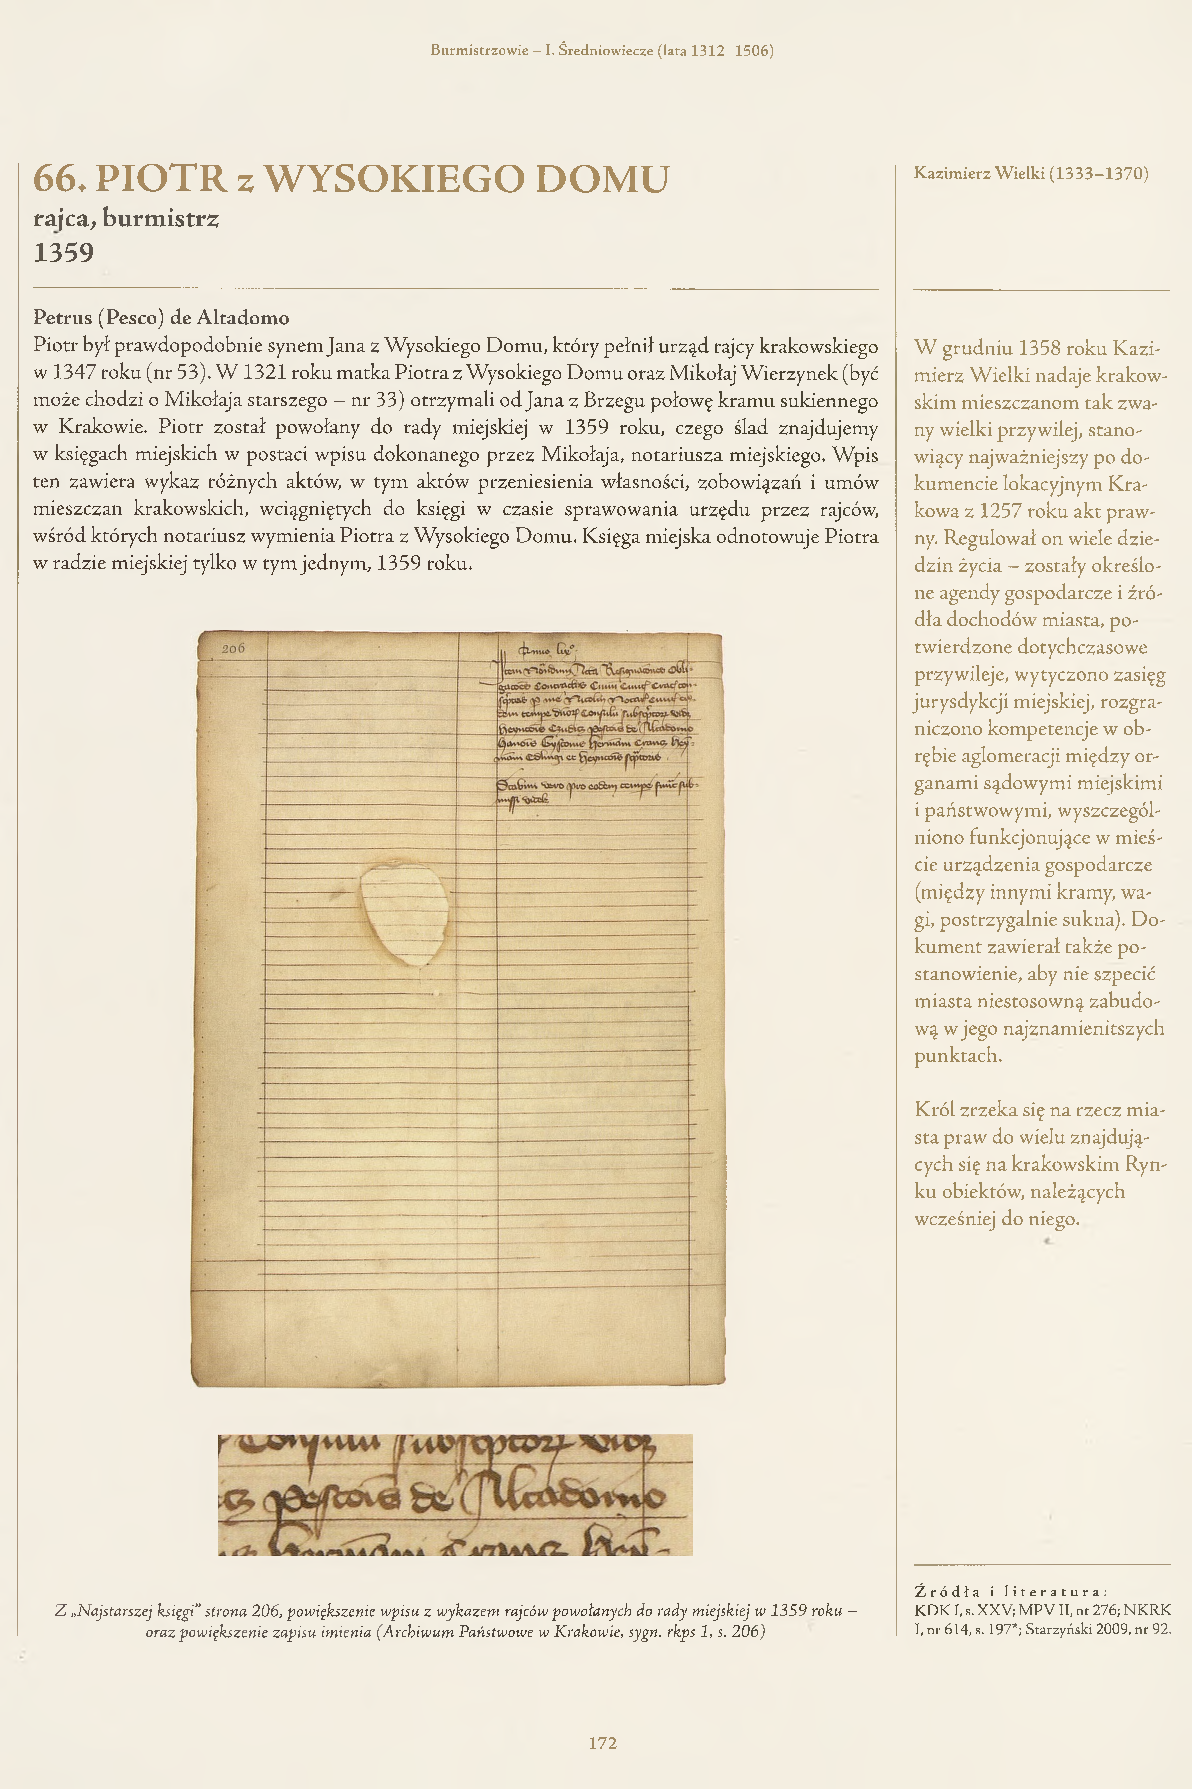 Burmistrzowie – I. Średniowiecze (lata 1312 1506)
66. PIOTR z WYSOKIEGO DOMU
rajca, burmistrz
1359
Petrus (Pesco) de Altadomo
Piotr był prawdopodobnie synem Jana z Wysokiego Domu, który pełnił urząd rajcy krakowskiego
w 1347 roku (nr 53). W 1321 roku matka Piotra z Wysokiego Domu oraz Mikołaj Wierzynek (być
może chodzi o Mikołaja starszego – nr 33) otrzymali od Jana z Brzegu połowę kramu sukiennego
w Krakowie. Piotr został powołany do rady miejskiej w 1359 roku, czego ślad znajdujemy
w księgach miejskich w postaci wpisu dokonanego przez Mikołaja, notariusza miejskiego. Wpis
ten zawiera wykaz różnych aktów, w tym aktów przeniesienia własności, zobowiązań i umów
mieszczan krakowskich, wciągniętych do księgi w czasie sprawowania urzędu przez rajców,
wśród których notariusz wymienia Piotra z Wysokiego Domu. Księga miejska odnotowuje Piotra
w radzie miejskiej tylko w tym jednym, 1359 roku.
206
de Altadomo
Z „Najstarszej księgi” strona 206, powiększenie wpisu z wykazem rajców powołanych do rady miejskiej w 1359 roku –
oraz powiększenie zapisu imienia (Archiwum Państwowe w Krakowie, sygn. rkps 1, s. 206)
Kazimierz Wielki (1333–1370)
W grudniu 1358 roku Kazi-
mierz Wielki nadaje krakow-
skim mieszczanom tak zwa-
ny wielki przywilej, stano-
wiący najważniejszy po do-
kumencie lokacyjnym Kra-
kowa z 1257 roku akt praw-
ny. Regulował on wiele dzie-
dzin życia – zostały określo-
ne agendy gospodarcze i źró-
dła dochodów miasta, po-
twierdzone dotychczasowe
przywileje, wytyczono zasięg
jurysdykcji miejskiej, rozgra-
niczono kompetencje w ob-
rębie aglomeracji między or-
ganami sądowymi miejskimi
i państwowymi, wyszczegól-
niono funkcjonujące w mieś-
cie urządzenia gospodarcze
(między innymi kramy, wa-
gi, postrzygalnie sukna). Do-
kument zawierał także po-
stanowienie, aby nie szpecić
miasta niestosowną zabudo-
wą w jego najznamienitszych
punktach.
Król zrzeka się na rzecz mia-
sta praw do wielu znajdują-
cych się na krakowskim Ryn-
ku obiektów, należących
wcześniej do niego.
Źródła i literatura:
KDK I, s. XXV; MPV II, nr 276; NKRK
I, nr 614, s. 197*; Starzyński 2009, nr 92.
172